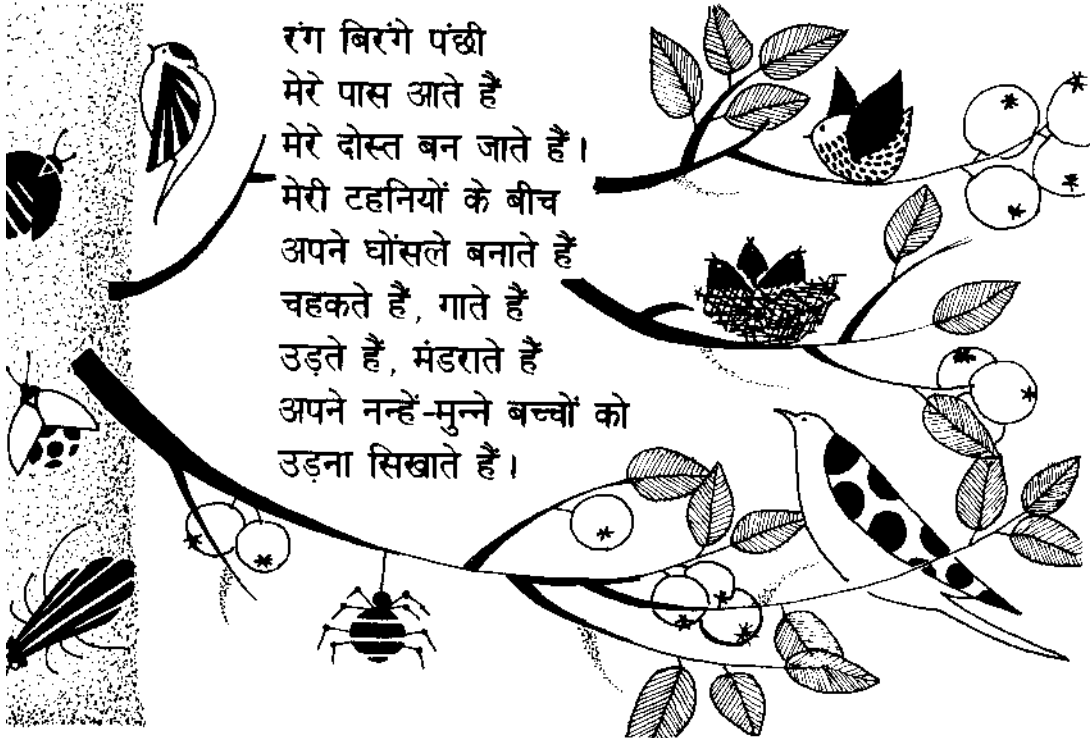 रंग बिरंगे पंछी
मेरे पास आते हैं
मेरे दोस्त बन जाते हैं।
मेरी टहनियों के बीच
अपने घोंसले बनाते हैं
चहकते हैं, गाते हैं
उड़ते हैं, मंडराते हैं
अपने नन्हें-मुन्ने बच्चों को
उड़ना सिखाते हैं।